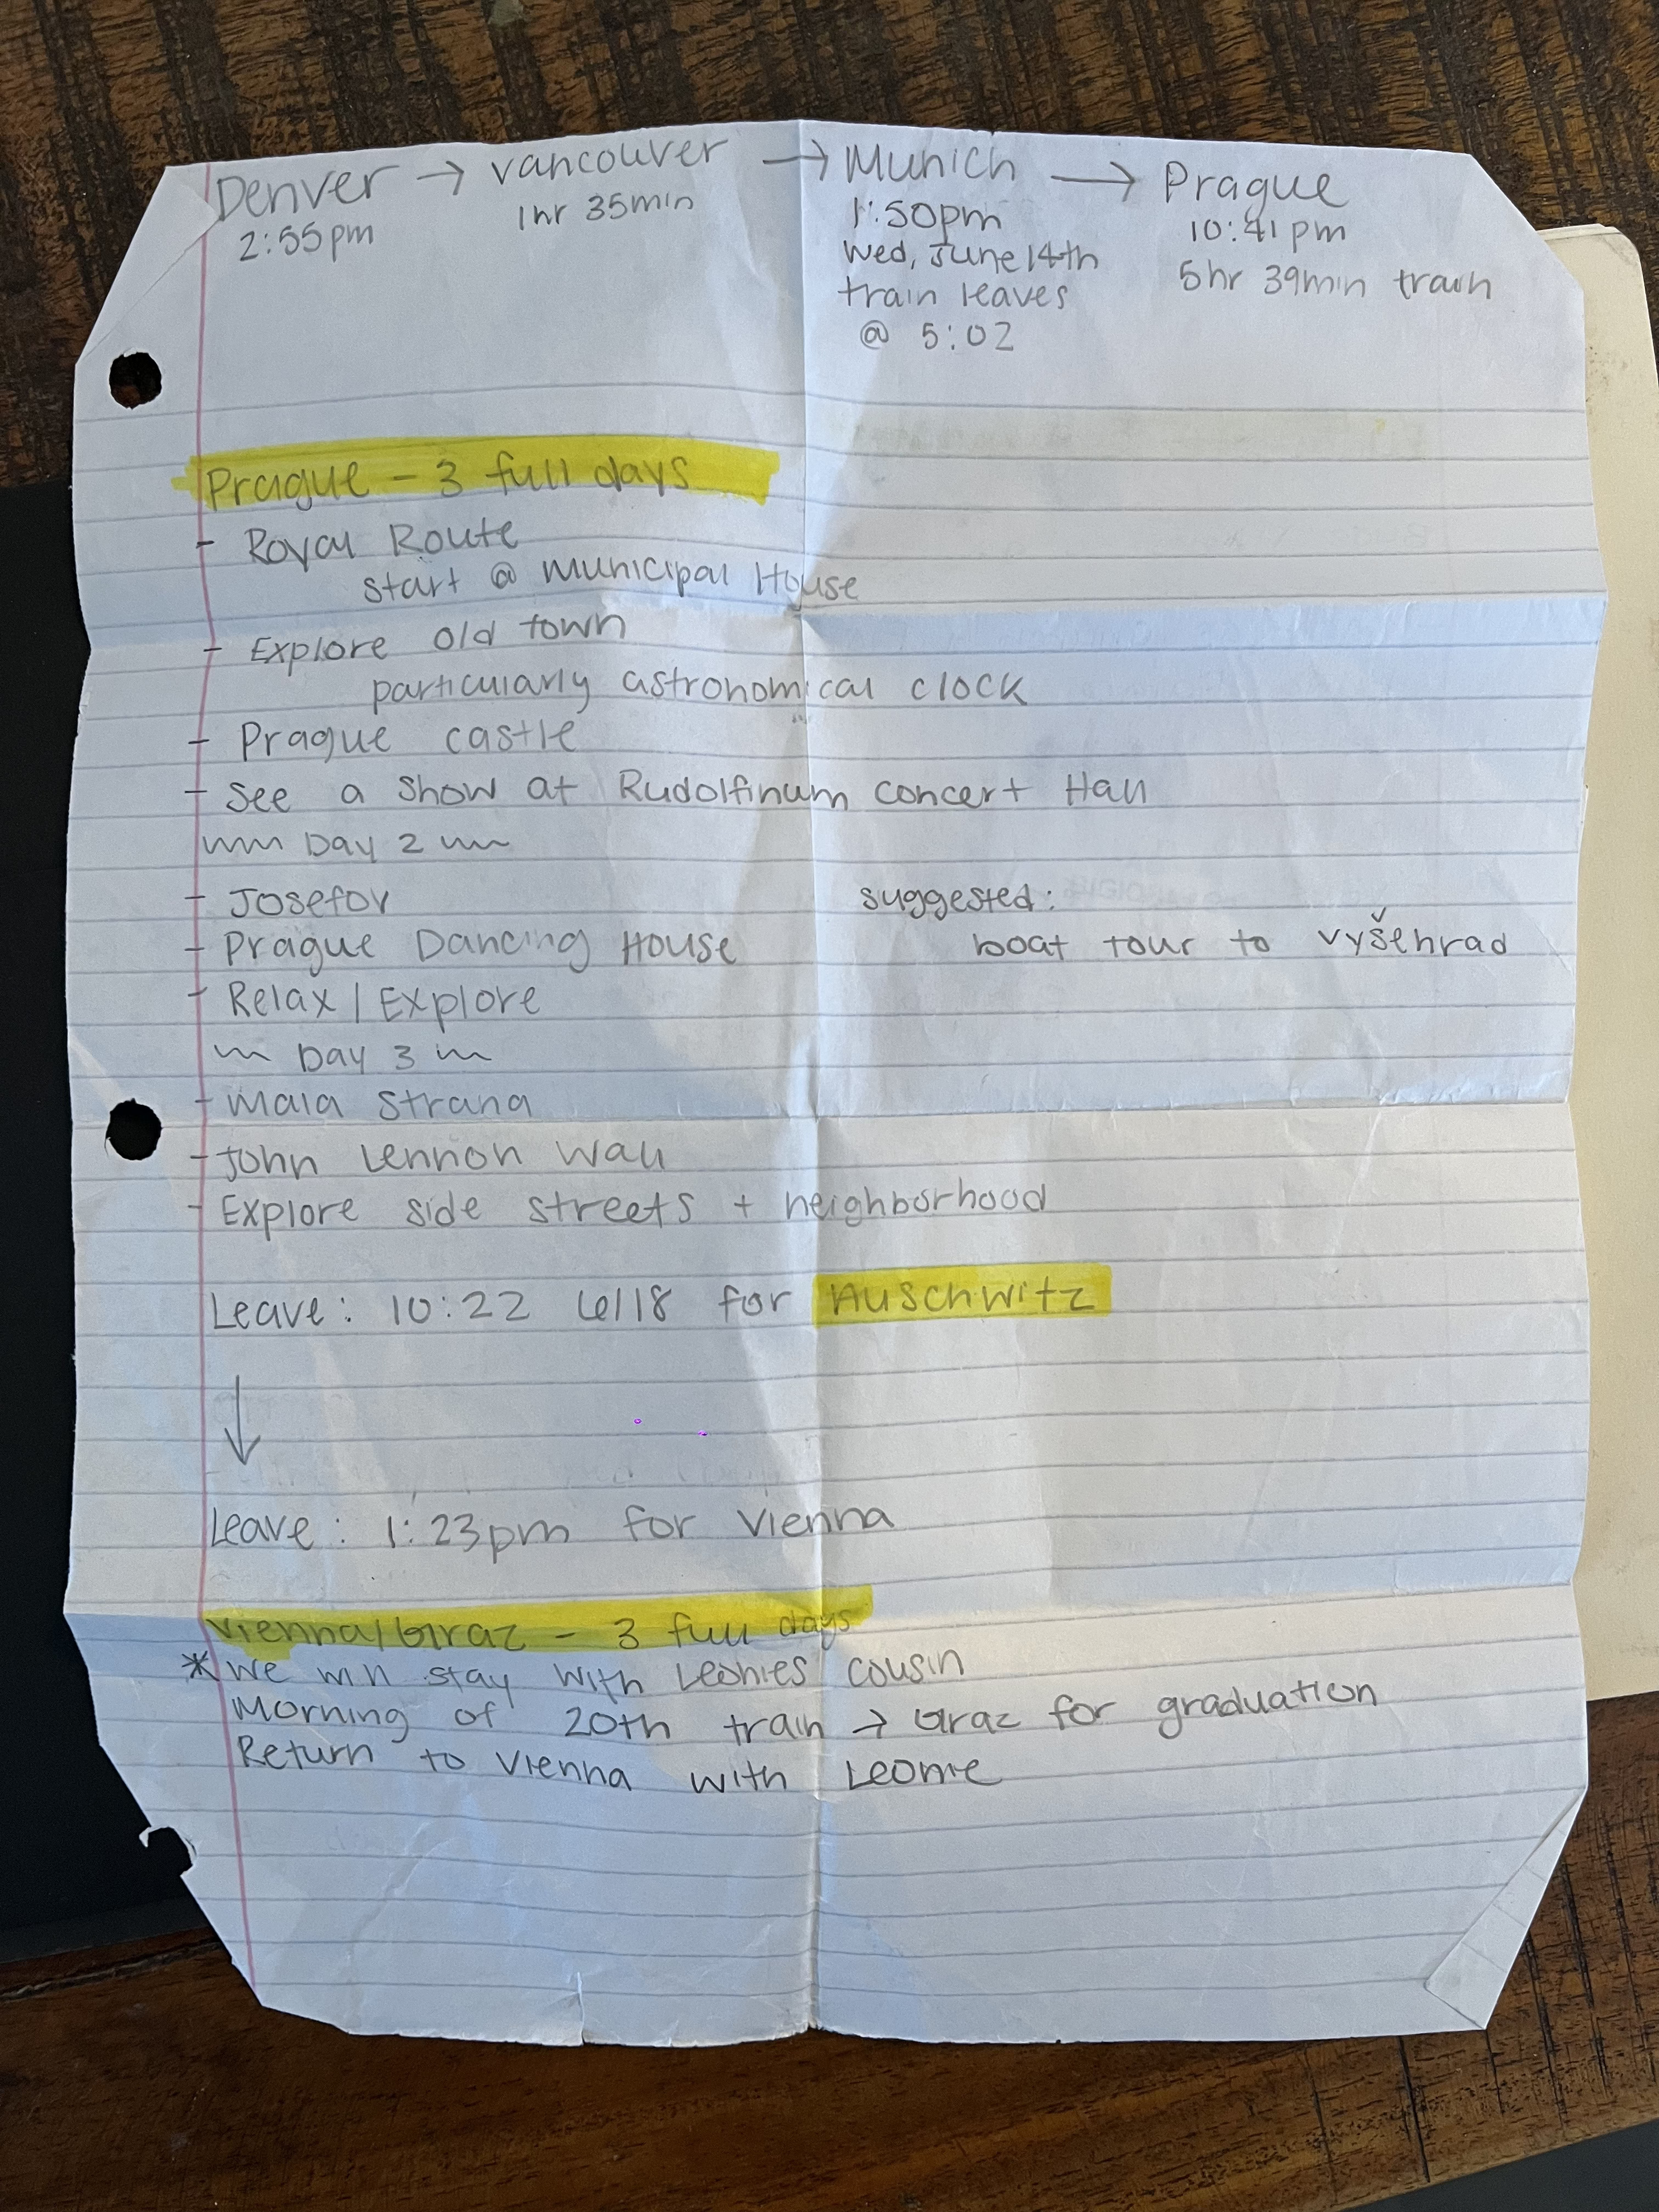 Denver → Vancouver → Munich → Prague
2:55pm 1hr 35min 1:50pm 10:41pm
Wed, June 14th 5hr 39min train
train leaves
@ 5:02
Prague - 3 full days
- Royal Route
start @ Municipal House
- Explore old town
particularly astronomical clock
- Prague castle
- See a show at Rudolfinum concert Hall
~~ Day 2 ~~
- Josefov suggested:
- Prague Dancing House boat tour to Vyšehrad
- Relax / Explore
~~ Day 3 ~~
- Mala Strana
- John Lennon Wall
- Explore side streets + neighborhood
Leave: 10:22 6/18 for Auschwitz
↓
Leave: 1:23pm for Vienna
Vienna/Graz - 3 full days
* We will stay with Leonies cousin
Morning of 20th train → Graz for graduation
Return to Vienna with Leonie